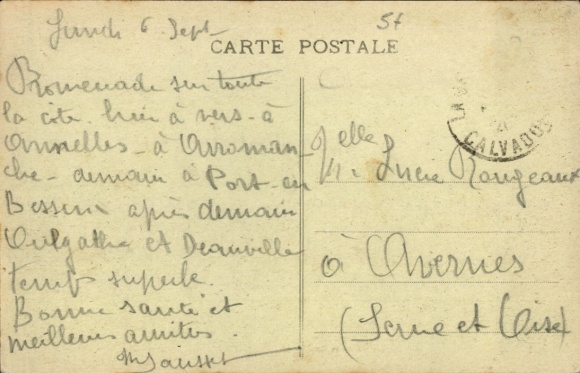 Lundi 6 Sept
57
CARTE POSTALE
Promenade sur toute
la côte. hier à vers - à
Asnelles - à Arroman
che - demain à Port-en
Bessin après demain
et Deauville
temps superbe.
Bonne santé et
meilleures amitiés.
CALVADOS
Melle Lucie Rougeaux
à Avernes
(Seine et Oise)